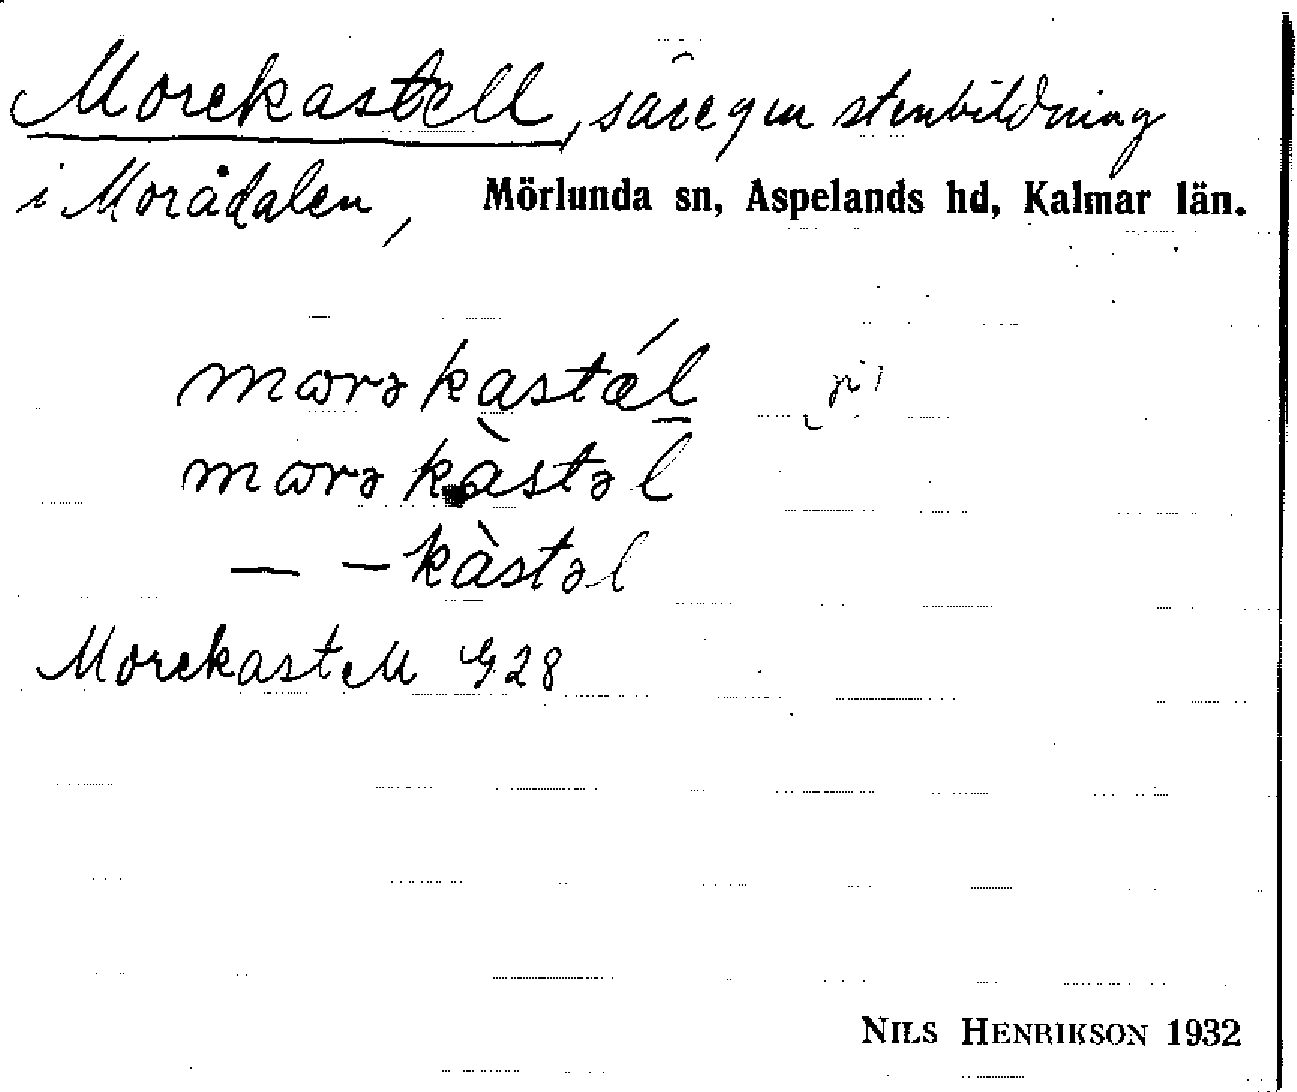 Morekastell, säregen stenbildning
i Morådalen, Mörlunda sn, Aspelands hd, Kalmar län.
marəkastǽl
marəkàstəl
— — kàstəl
Morekastell G28
NILS HENRIKSON 1932